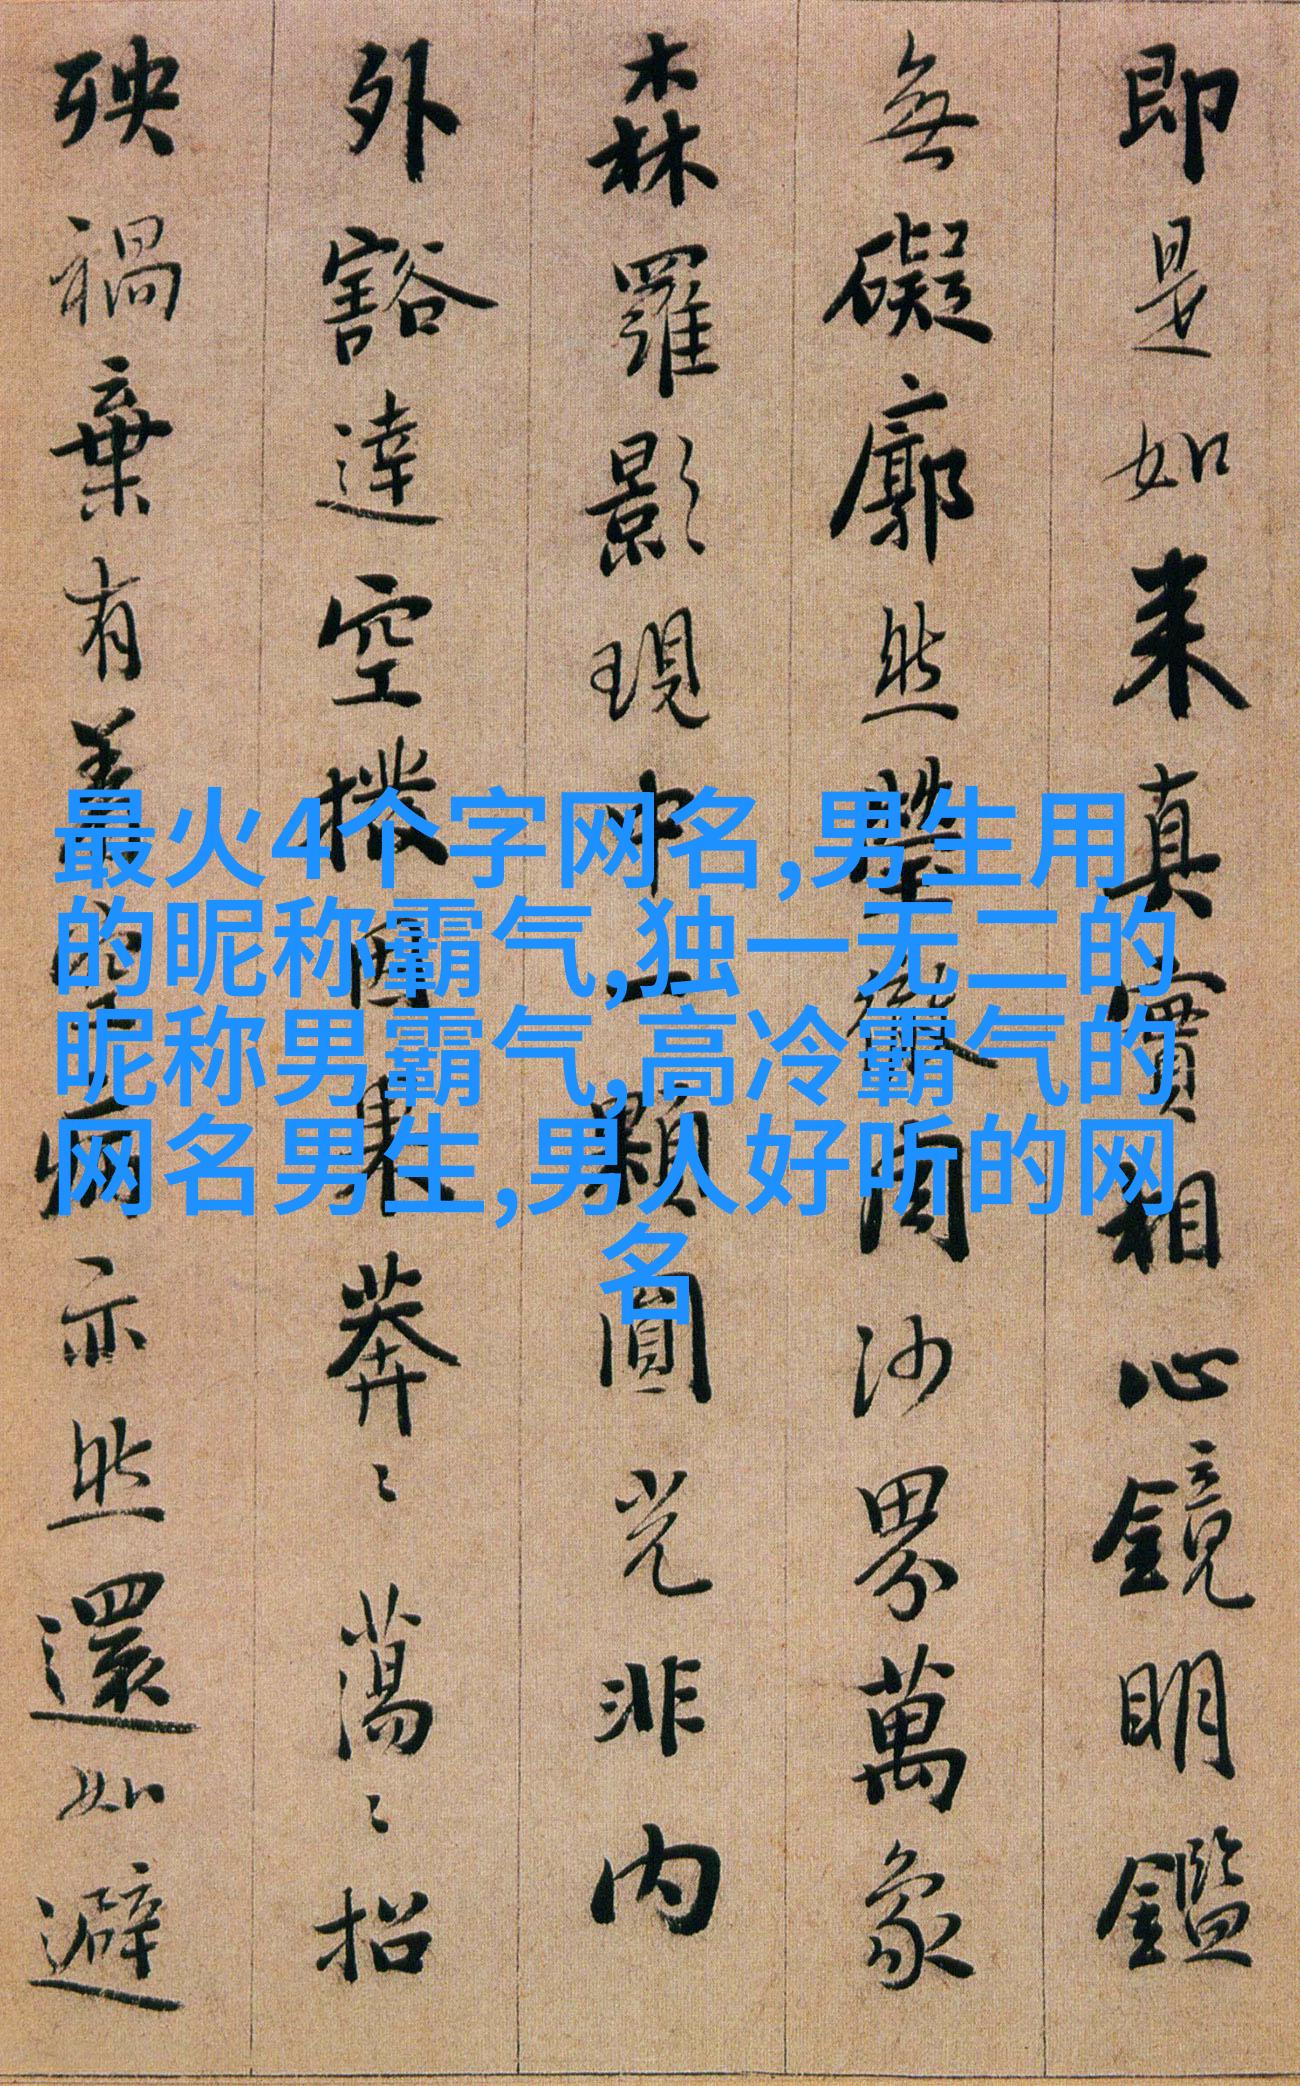 即是如来真實相心鏡明鑑
無礙廓然瑩徹周沙界萬象
森羅影現中一顆圓光非内
外豁達空撥因果莽〻蕩〻招
殃禍棄有著空病亦然還如避
最火4个字网名,男生用
的昵称霸气,独一无二的
昵称男霸气,高冷霸气的
网名男生,男人好听的网
名